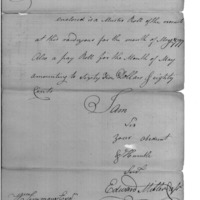 enclosed is a Muster Roll of the recruits
at this rendezvous for the month of May 1799
Also a pay Roll for the Month of May
amounting to Sixty two Dollars & eighty
Cents
I am
Sir
your obedient
& Humble
Servt
Edward Miller Capt